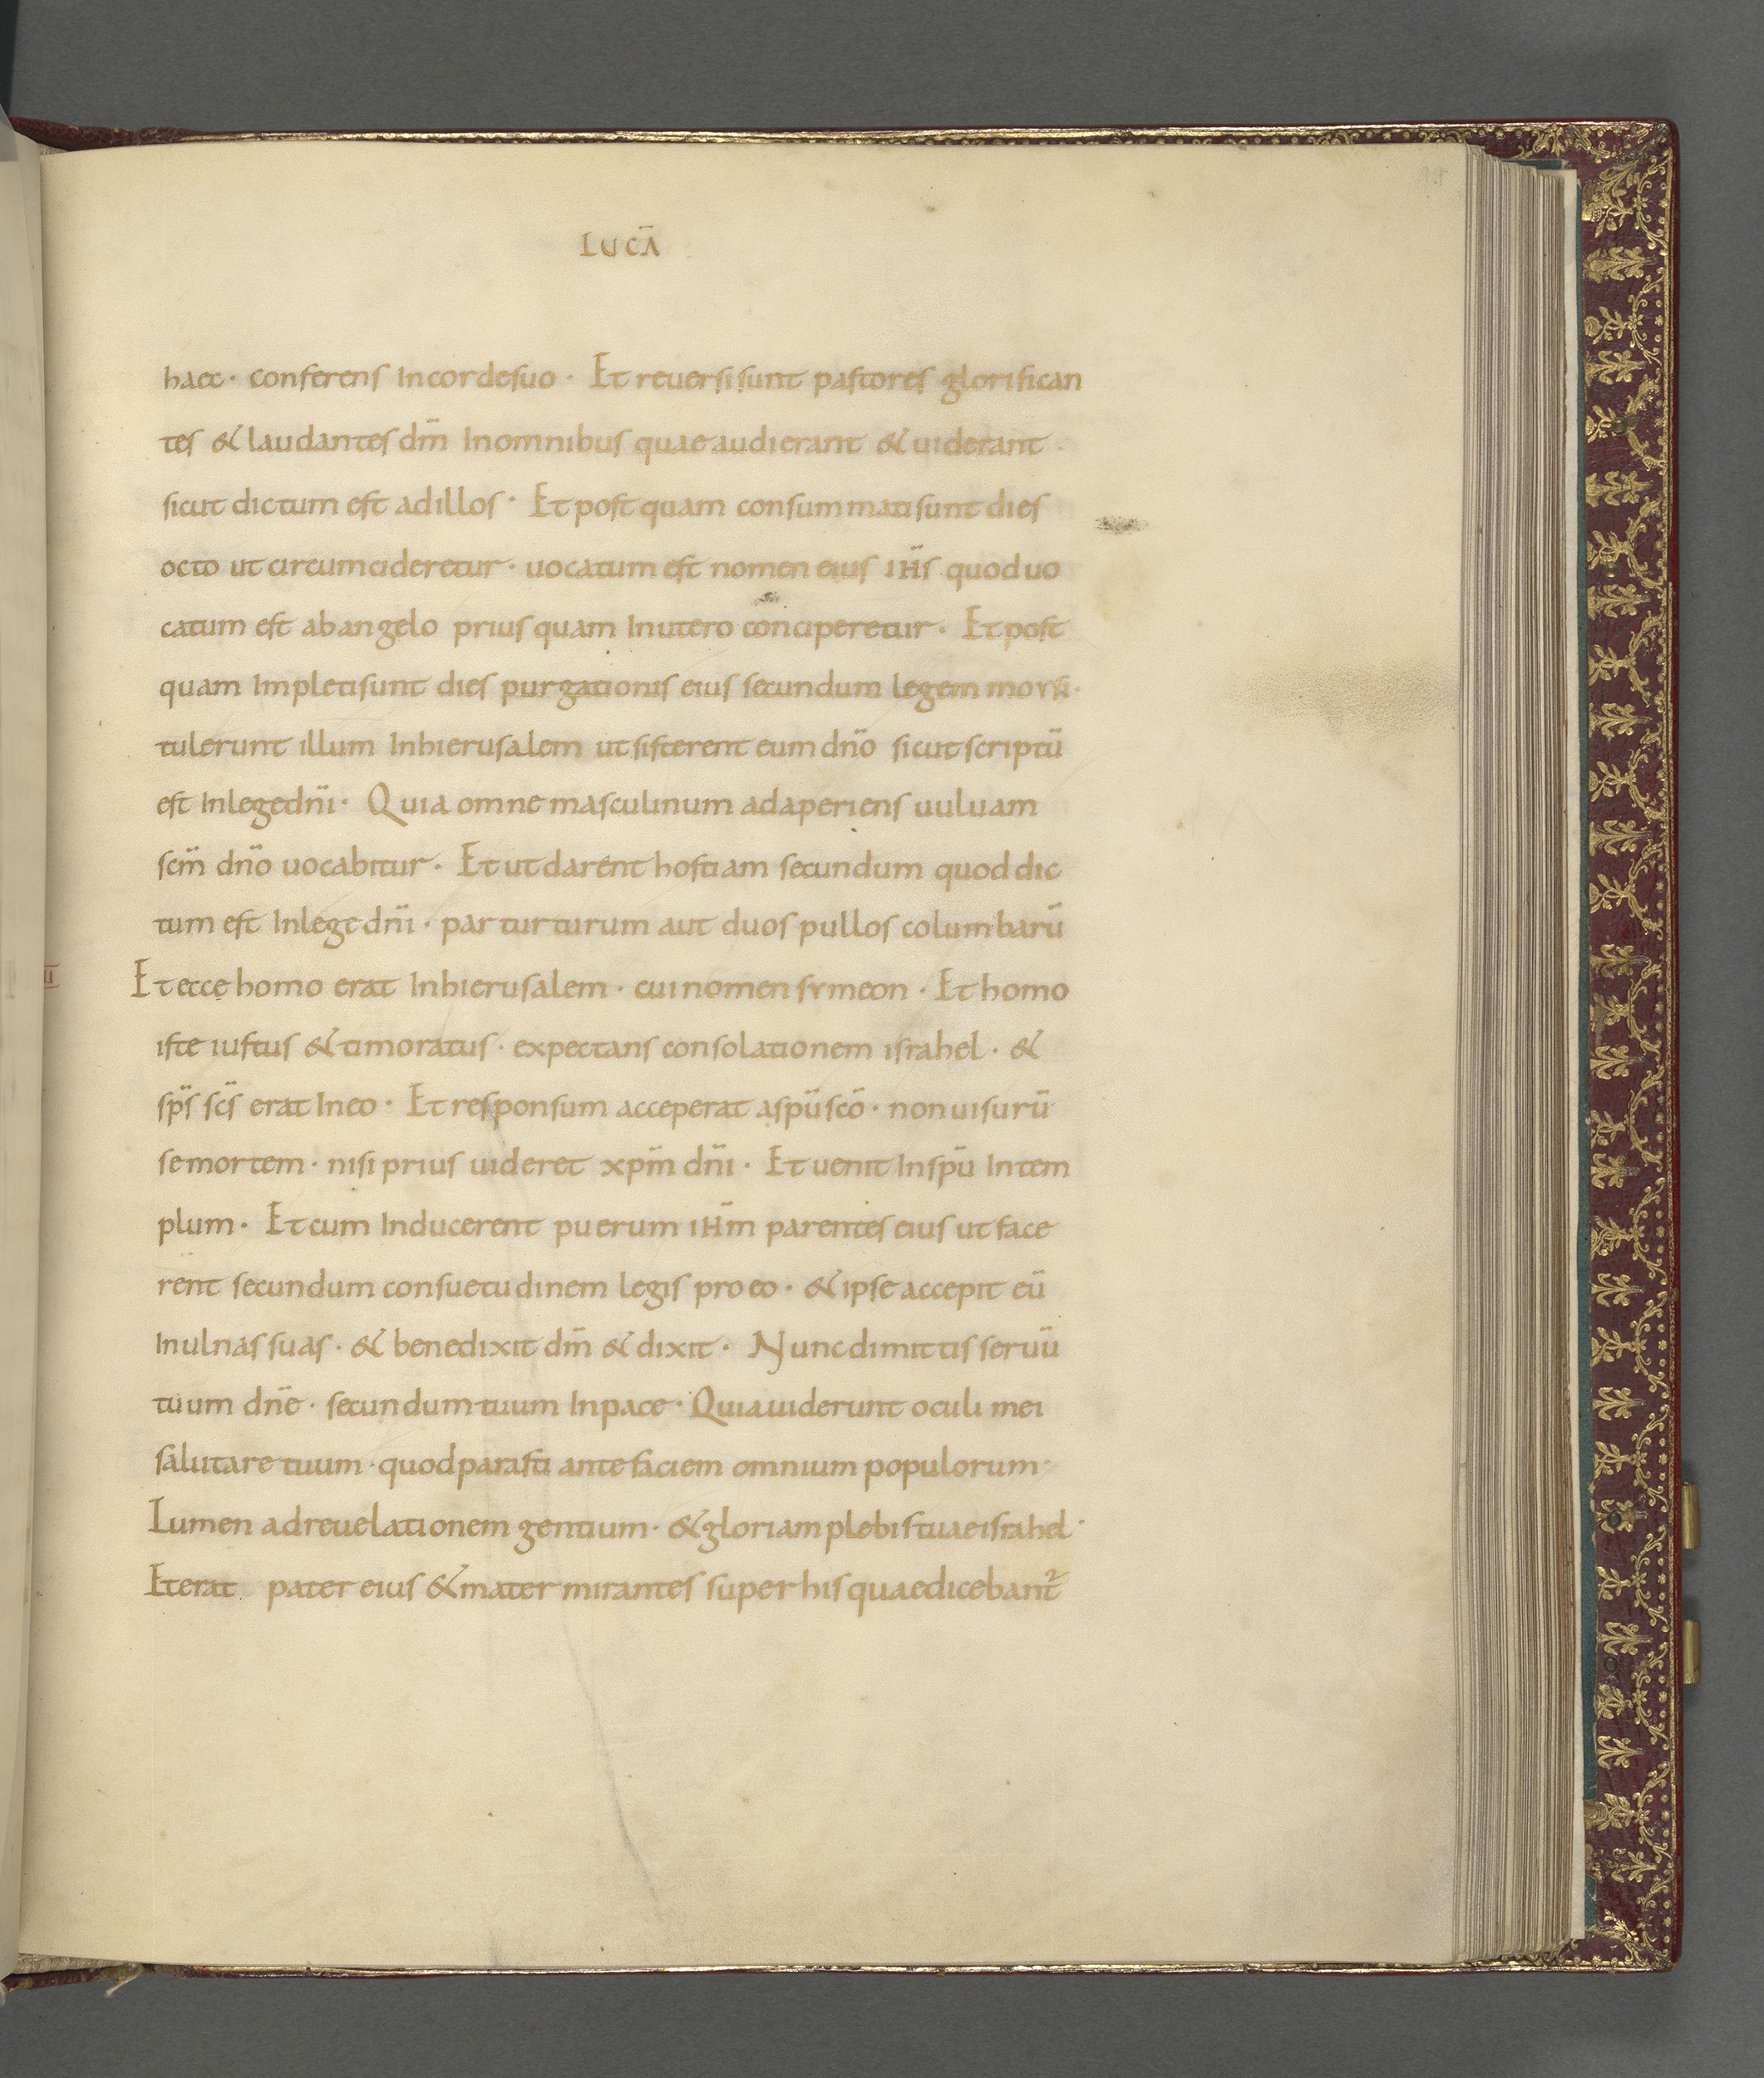 LUCĀ
haec · conferens Incordesuo · Et reuersi sunt pastores glorifican
tes & laudantes dm̄ Inomnibus quae audierant & uiderant
sicut dictum est adillos · Et post quam consummati sunt dies
octo ut circumcideretur · uocatum est nomen eius IHS̄ quod uo
catum est ab angelo prius quam Inutero conciperetur · Et post
quam Impleti sunt dies purgationis eius secundum legem moysi ·
tulerunt illum Inhierusalem ut sisterent eum dn̄o sicut scriptū
est Inlege dn̄i · Quia omne masculinum adaperiens uuluam
scm̄ dn̄o uocabitur · Et ut darent hostiam secundum quod dic
tum est Inlege dn̄i · par turturum aut duos pullos columbarū
Et ecce homo erat Inhierusalem · cui nomen symeon · Et homo
iste iustus & timoratus · expectans consolationem israhel · &
sp̄s sc̄s erat Ineo · Et responsum acceperat asp̄u sc̄o · non uisurū
se mortem · nisi prius uideret xpm̄ dn̄i · Et uenit Insp̄u Intem
plum · Et cum Inducerent puerum IHm̄ parentes eius ut face
rent secundum consuetudinem legis pro eo · & ipse accepit eū
Inulnas suas · & benedixit dm̄ & dixit · Nunc dimittis seruū
tuum dn̄e · secundum tuum Inpace · Quia uiderunt oculi mei
salutare tuum · quod parasti ante faciem omnium populorum ·
Lumen adreuelationem gentium · & gloriam plebis tuae israhel ·
Et erat pater eius & mater mirantes super his quae dicebant᷑